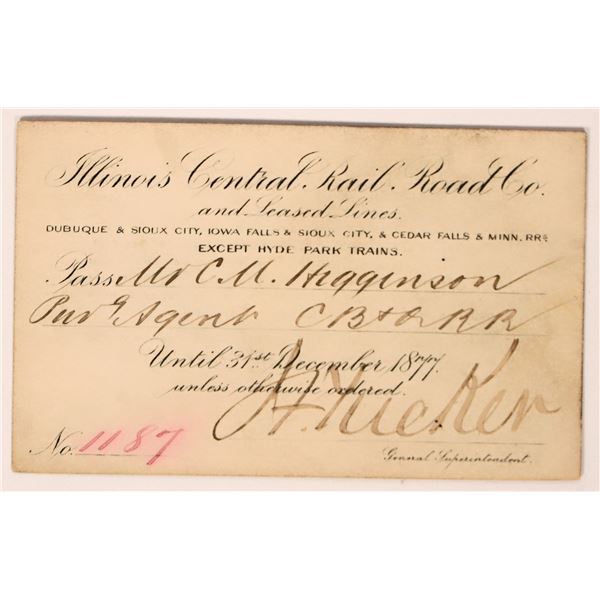 Illinois Central Rail Road Co.
and Leased Lines.
DUBUQUE & SIOUX CITY, IOWA FALLS & SIOUX CITY, & CEDAR FALLS & MINN. RRs
EXCEPT HYDE PARK TRAINS.
Pass Mr C. M. Higginson
Purg Agent CB&QRR
Until 31st December 1877.
unless otherwise ordered.
Tucker
No. 1187
General Superintendent.